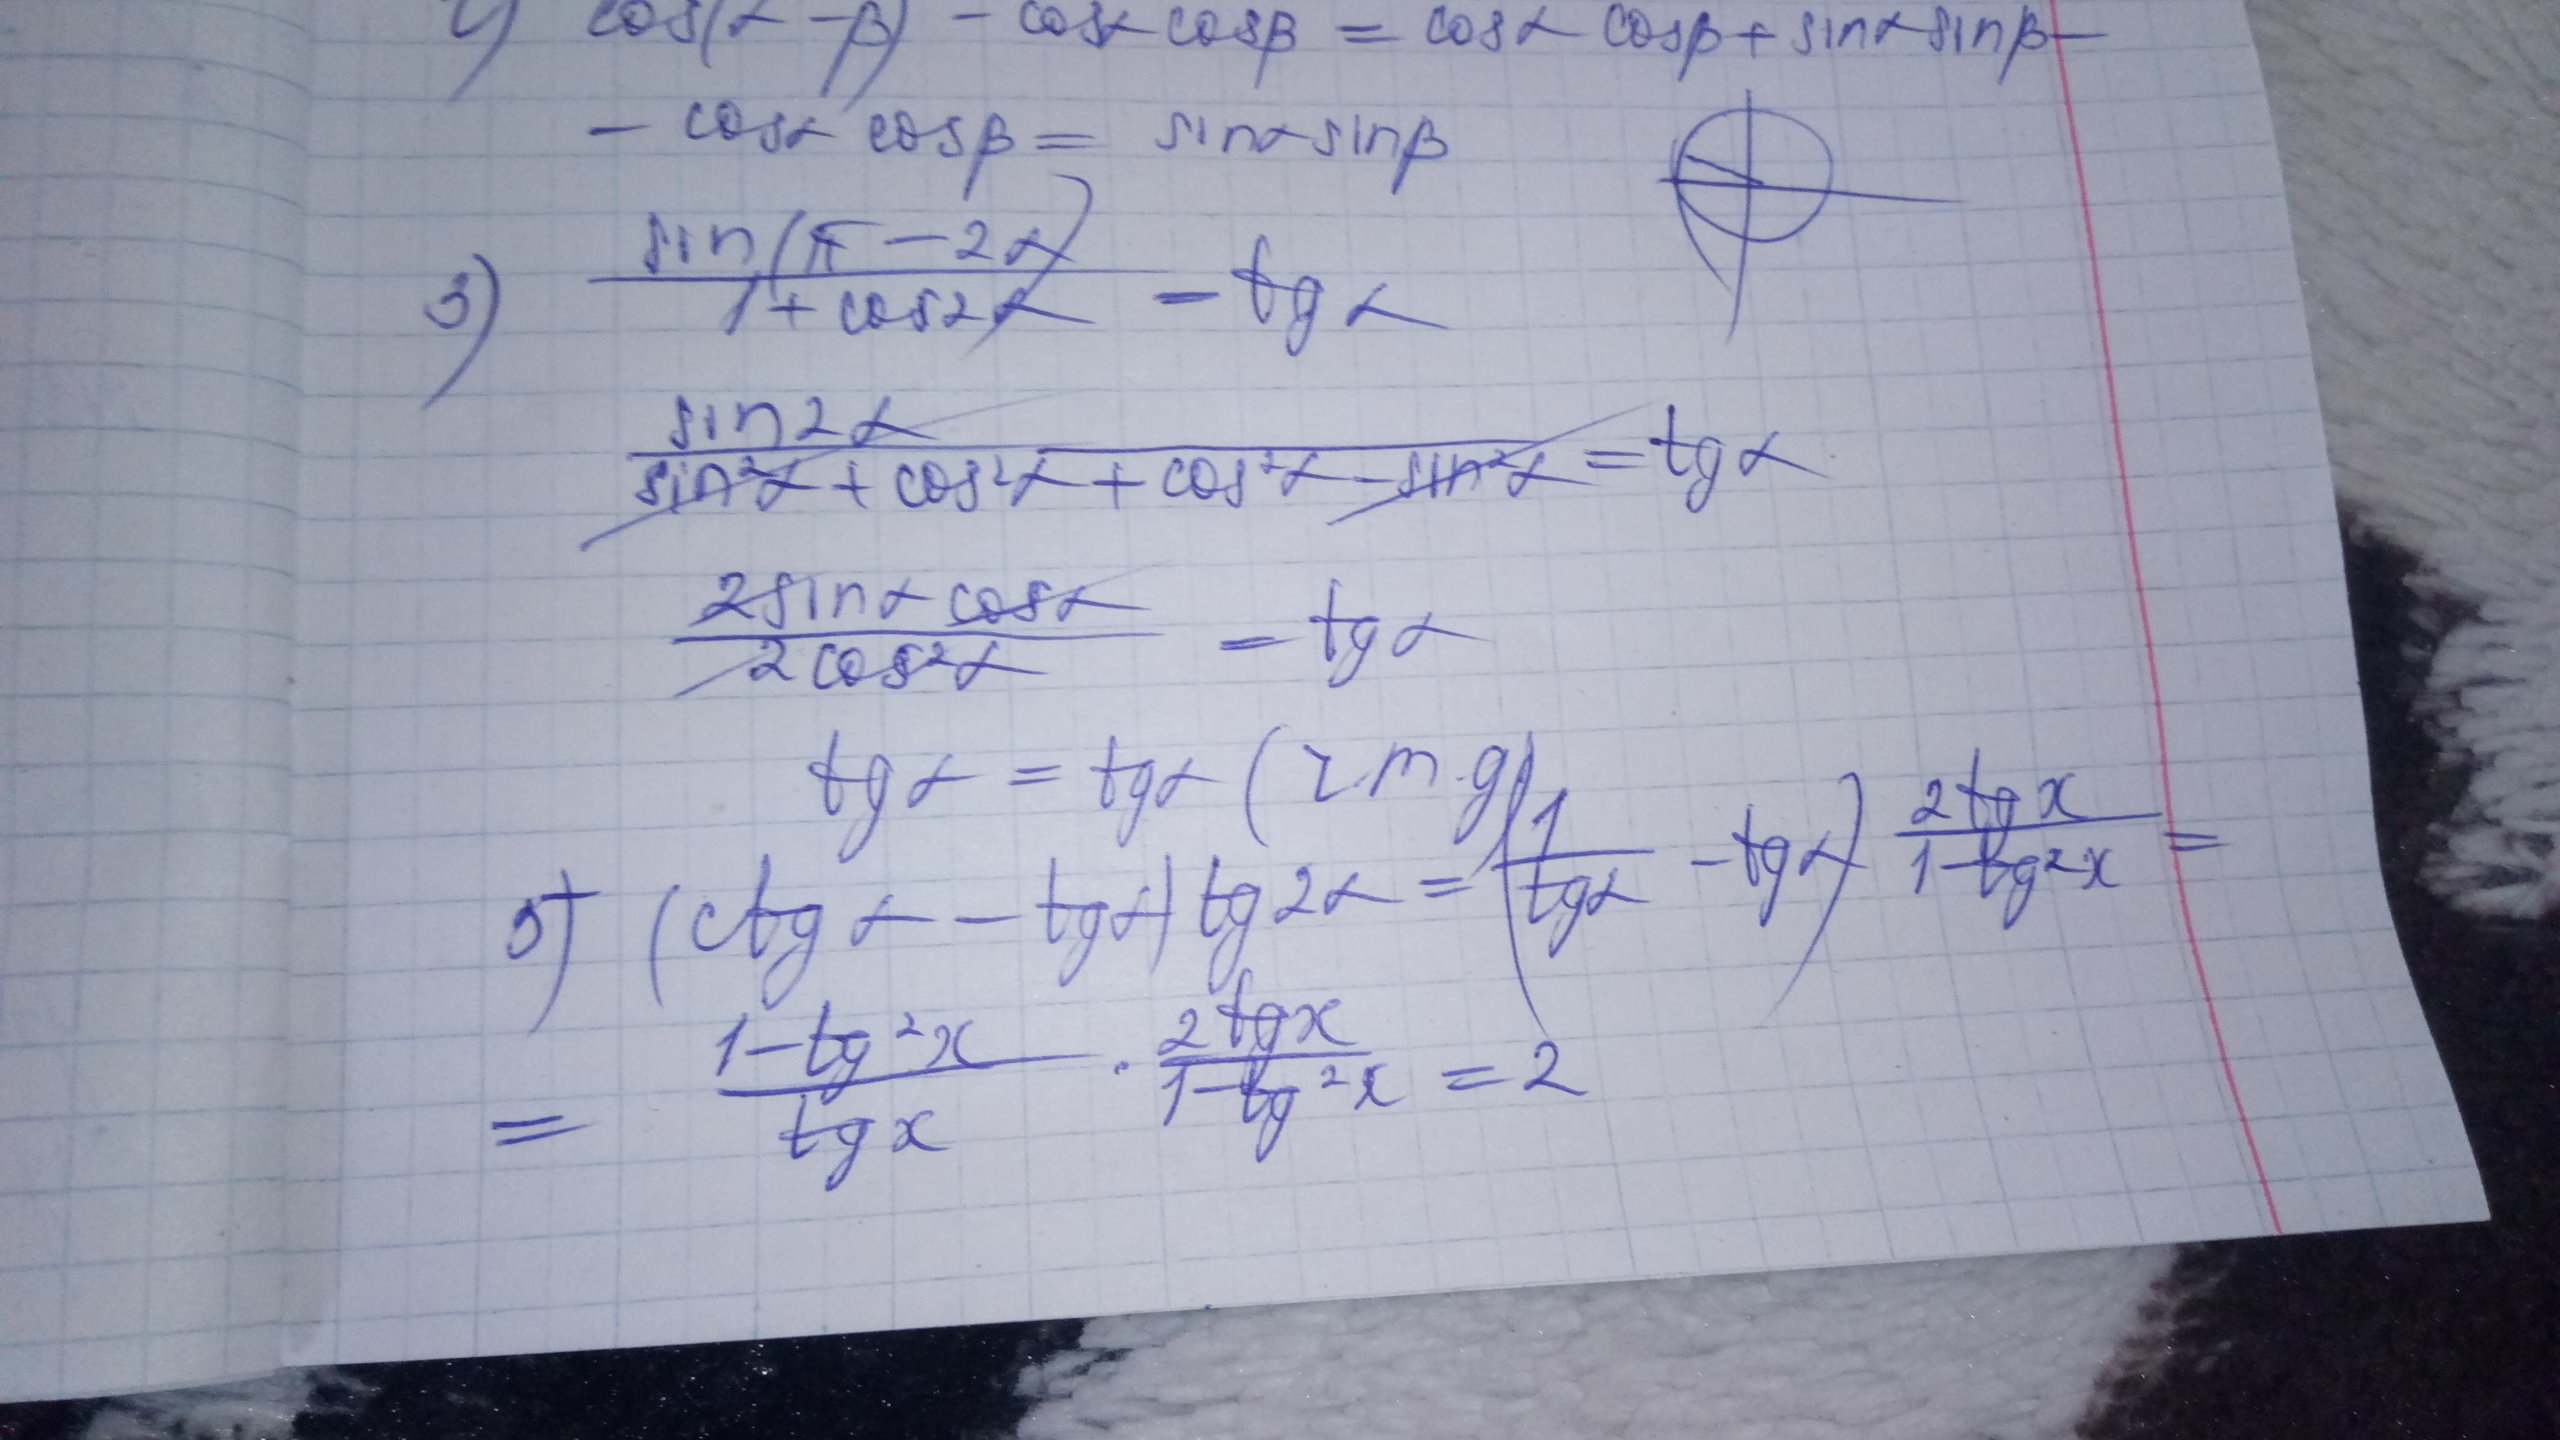 cos(α - β) - cosα cosβ = cosα cosβ + sinα sinβ -
- cosα cosβ = sinα sinβ
3) sin(π - 2α) / 1 + cos2α = tg α
sin2α / sin²α + cos²α + cos²α - sin²α = tg α
2sinα cosα / 2cos²α = tg α
tg α = tg α (г.т.д)
5) (ctg α - tg α) tg 2α = (1 / tg α - tg α) 2 tg x / 1 - tg²x =
= 1 - tg²x / tg x · 2 tg x / 1 - tg²x = 2